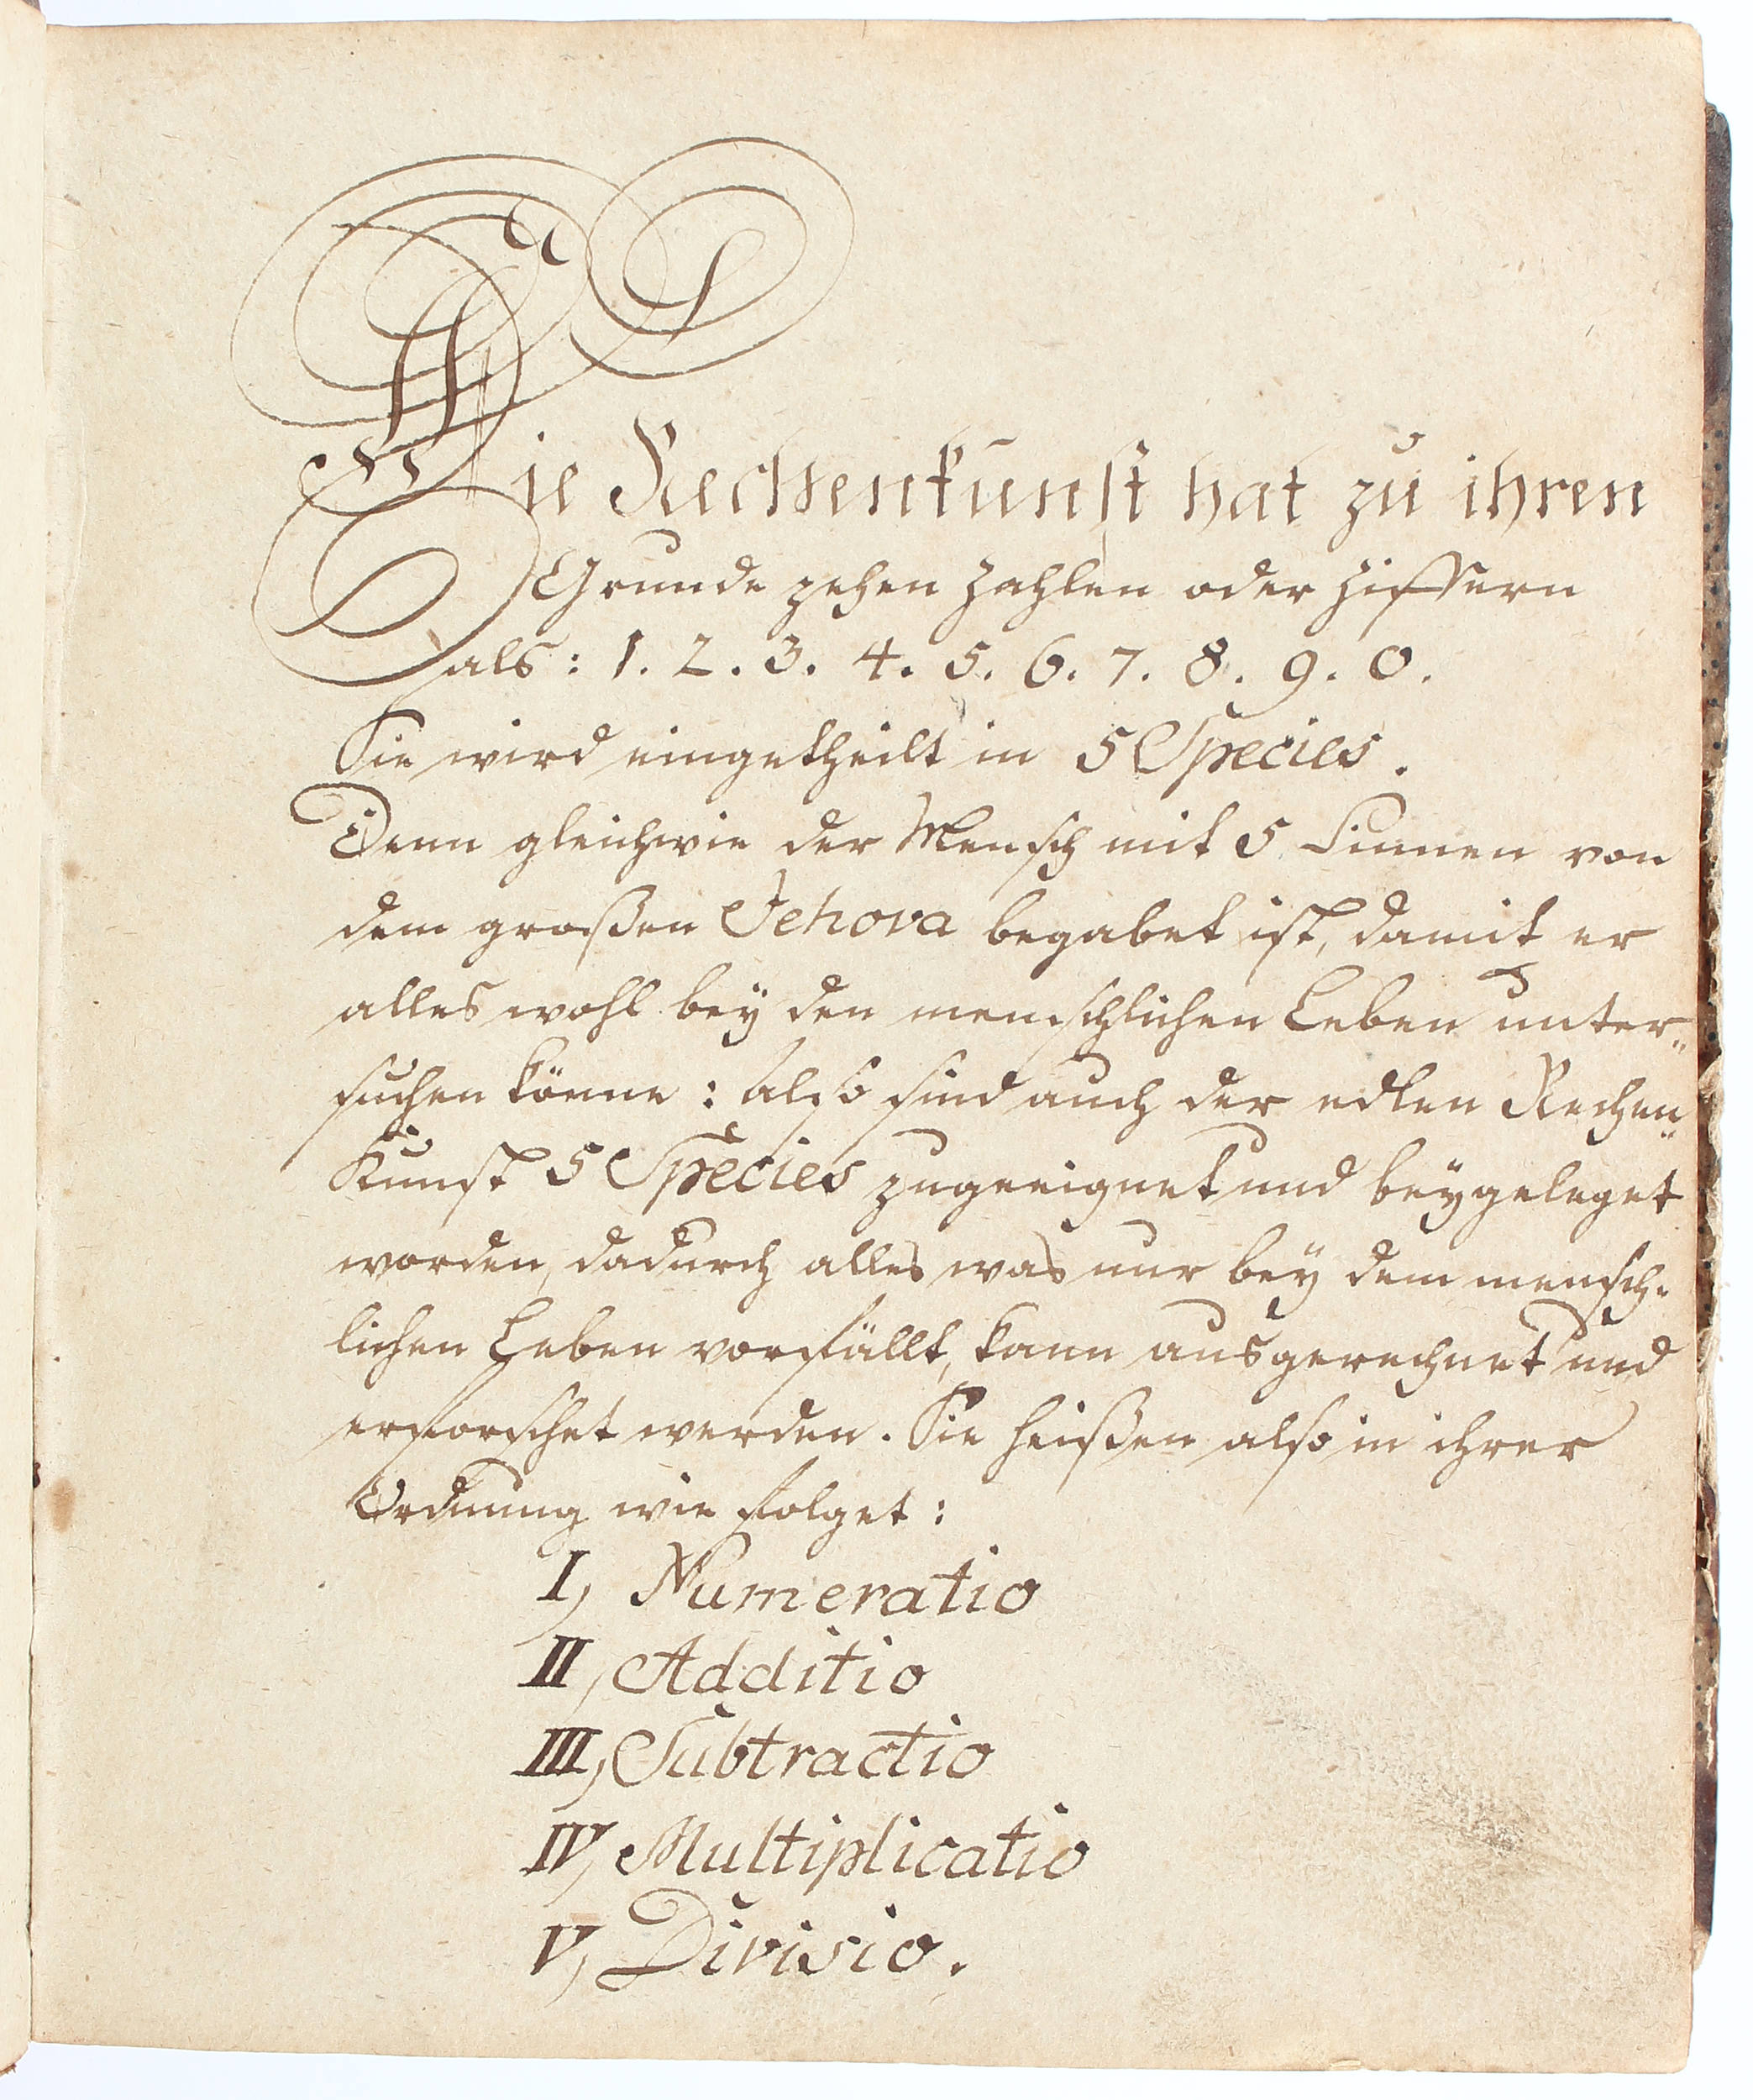 Die Rechenkunst hat zu ihren
Grunde zehen Zahlen oder Ziffern
als: 1. 2. 3. 4. 5. 6. 7. 8. 9. 0.
Sie wird eingetheilt in 5 Species.
Denn gleichwie der Mensch mit 5 Sinnen von
dem großen Jehova begabet ist, damit er
alles wohl bey den menschlichen Leben unter„
suchen könne: also sind auch der edlen Rechen„
Kunst 5 Species zugeeignet und beygeleget
worden, dadurch alles was nur bey dem mensch-
lichen Leben vorfällt, kann ausgerechnet und
erforschet werden. Sie heißen also in ihrer
Ordnung wie folget:
I, Numeratio
II, Additio
III, Subtractio
IV, Multiplicatio
V, Divisio.